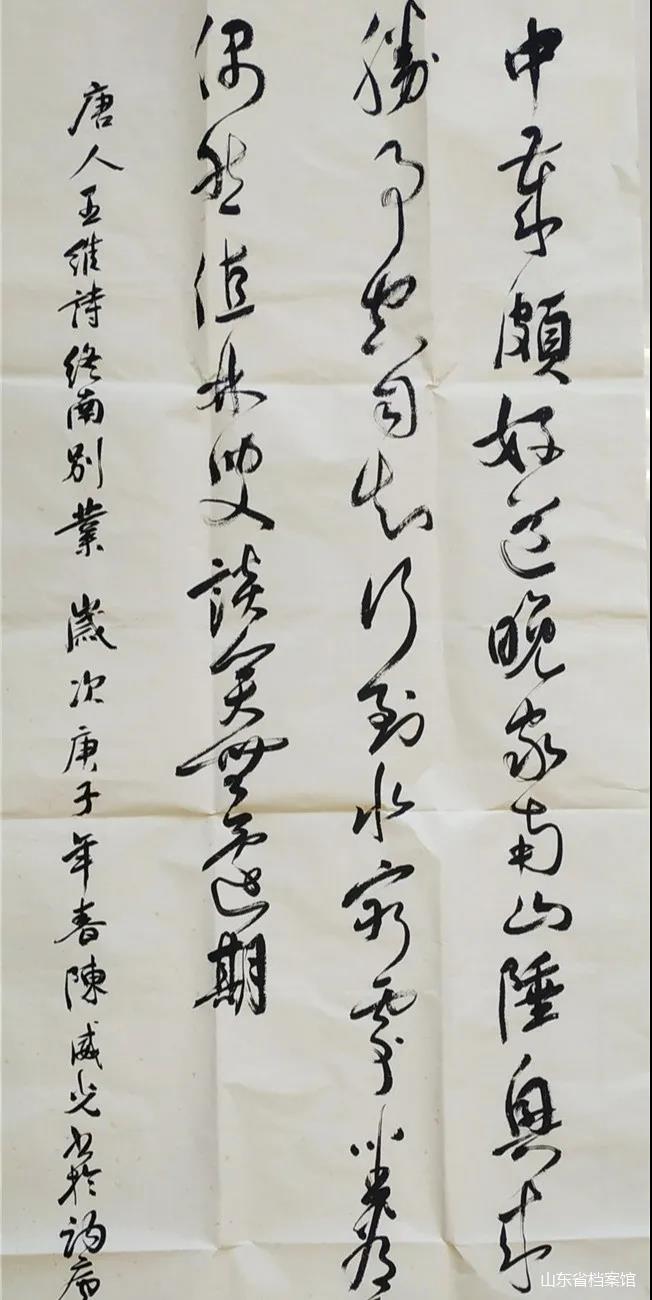 中歲頗好道晚家南山陲興來
勝事空自知行到水窮處坐看
偶然值林叟談笑無還期
唐人王維詩終南別業 歲次庚子年春陳威光書於
山东省档案馆